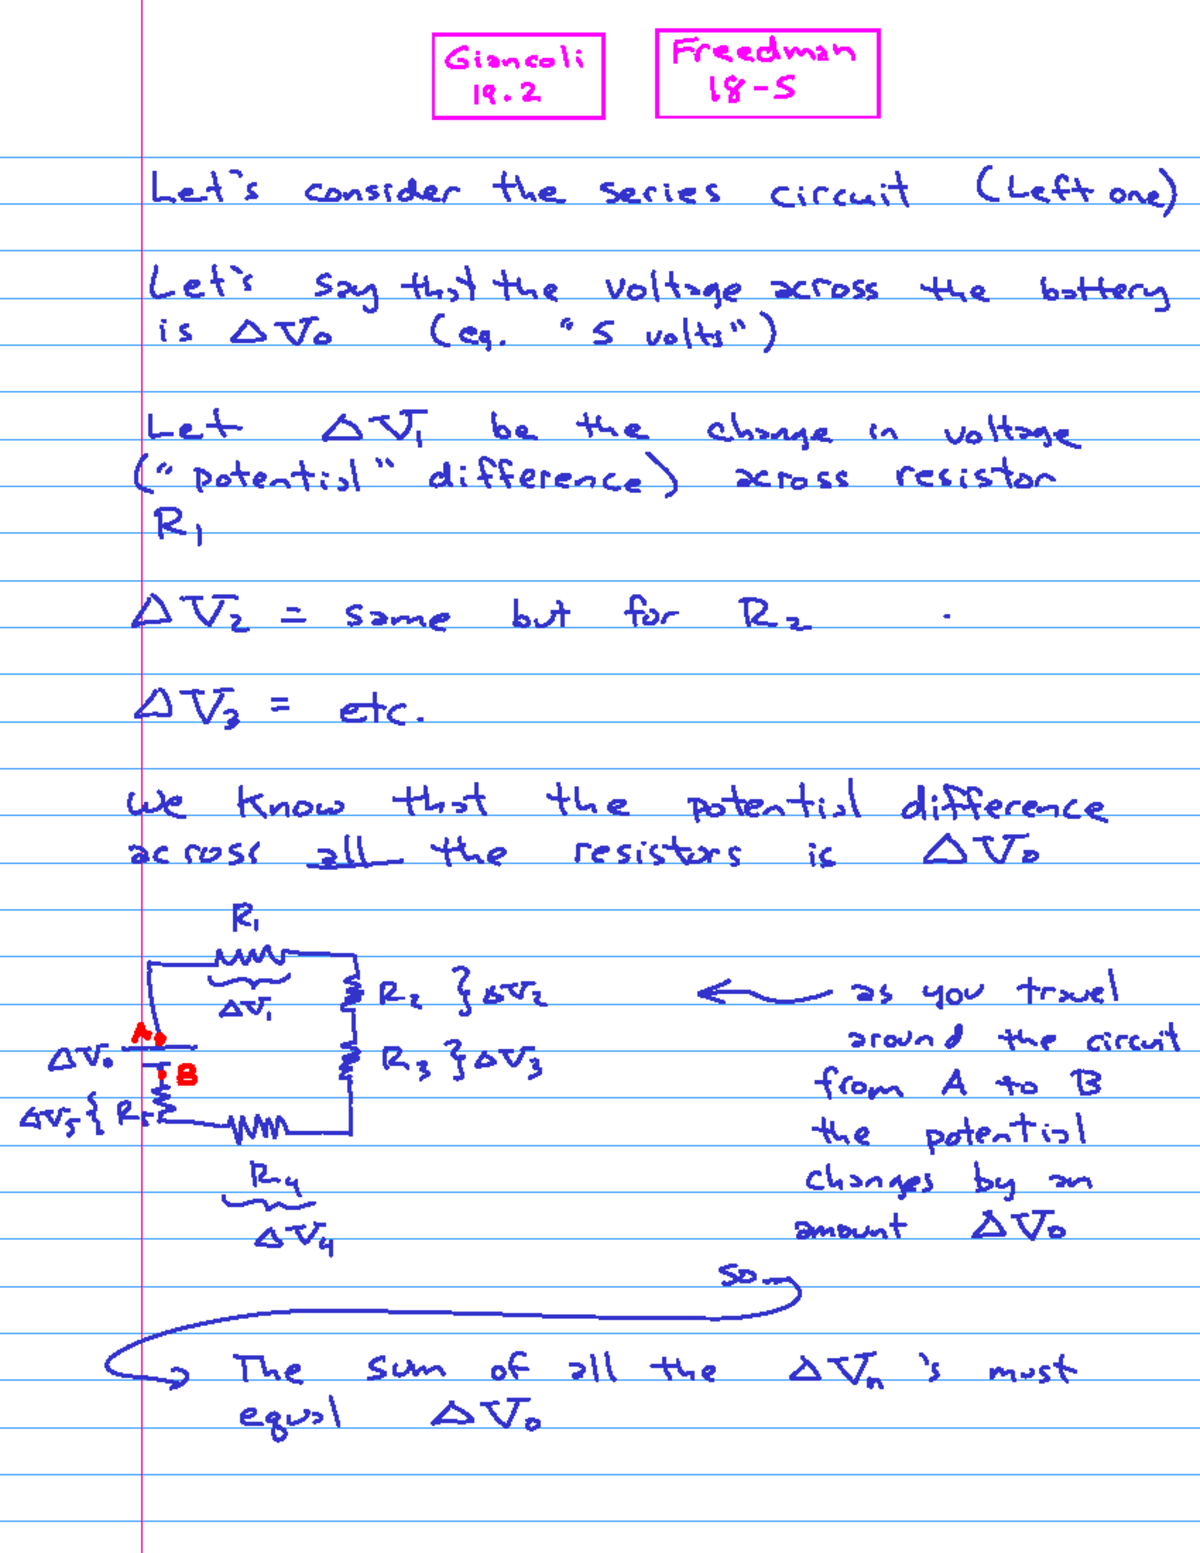 Giancoli
19.2
Freedman
18-5
Let's consider the series circuit (Left one)
Let's say that the voltage across the battery
is ΔV₀ (eg. "5 volts")
Let ΔV₁ be the change in voltage
("potential" difference) across resistor
R₁
ΔV₂ = same but for R₂
ΔV₃ = etc.
We know that the potential difference
across all the resistors is ΔV₀
R₁
ΔV₁
R₂ } ΔV₂
A
ΔV₀
R₃ } ΔV₃
B
ΔV₅ { R₅
R₄
ΔV₄
← as you travel
around the circuit
from A to B
the potential
changes by an
amount ΔV₀
so
→ The sum of all the ΔVₙ's must
equal ΔV₀